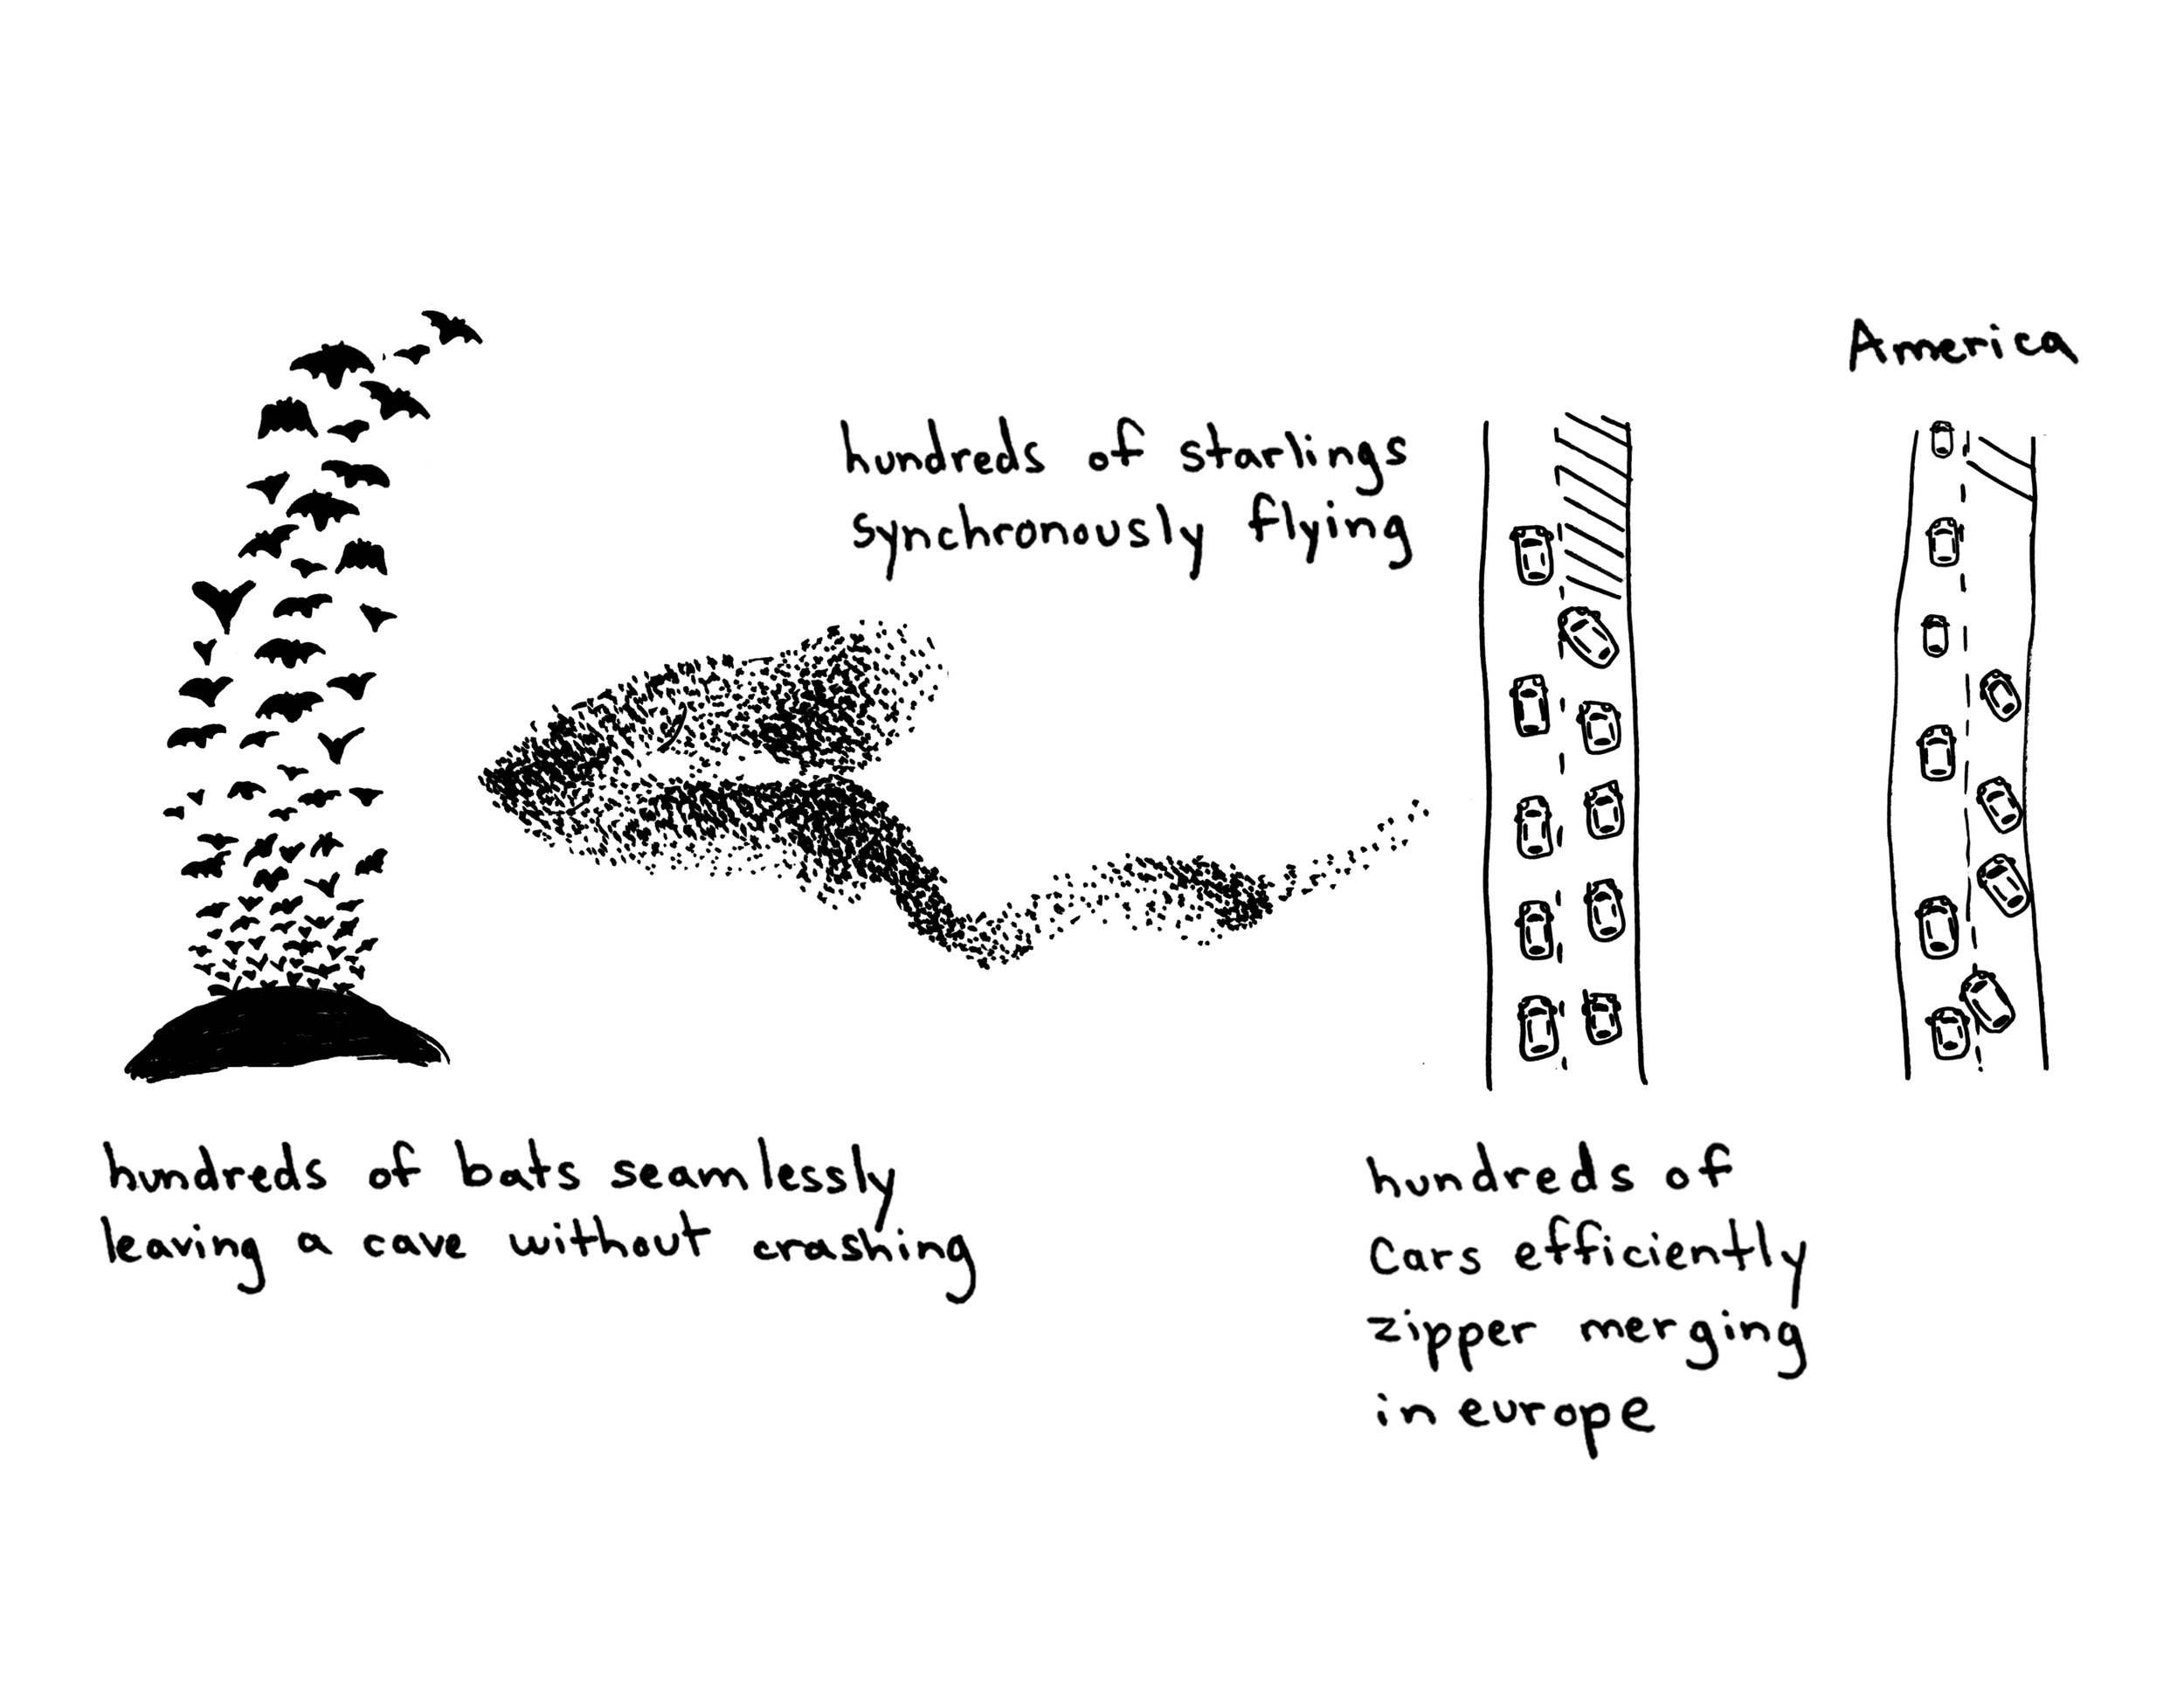 hundreds of bats seamlessly
leaving a cave without crashing
hundreds of starlings
synchronously flying
hundreds of
cars efficiently
zipper merging
in europe
America